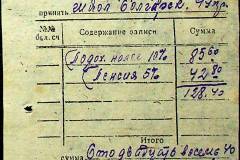 принять
№№ Содержание записи Сумма
Подох. налог 10% 85 60
Пенсия 5% 42 80
128. 40
Итого
сумма Сто двадцать восемь 40